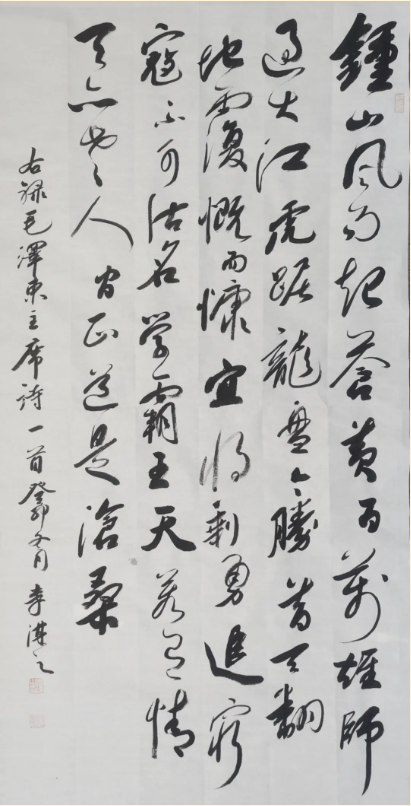 鍾山風雨起蒼黃百萬雄師
過大江虎踞龍盤今勝昔天翻
地覆慨而慷宜將剩勇追窮
寇不可沽名學霸王天若有情
天亦老人間正道是滄桑
右録毛澤東主席詩一首癸卯冬月李